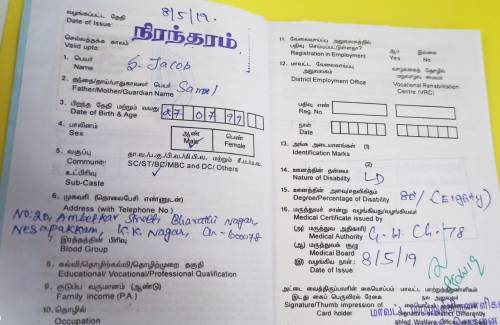 வழங்கப்பட்ட தேதி
Date of Issue: 8/5/19.
செல்லத்தக்க காலம்
Valid upto: நிரந்தரம்
1. பெயர்
Name S. Jacob
2. தந்தை/தாய்/பாதுகாவலர் பெயர்
Father/Mother/Guardian Name
3. பிறந்த தேதி மற்றும் வயது
Date of Birth & Age
4. பாலினம்
Sex
ஆண் பெண்
Male Female
5. வகுப்பு
Community SC/ST/BC/MBC and DC/ Others
உட்பிரிவு
Sub-Caste
6. முகவரி (தொலைபேசி எண்ணுடன்)
Address (with Telephone No.)
No: 20, Ambetkar Street, Bharathi Nagar,
Nesapakkam, K.K Nagar, Ch-600078
7. இரத்தத்தின் பிரிவு
Blood Group
8. கல்வி/தொழிற்கல்வி/தொழிற்முறை தகுதி
Educational/ Vocational/Professional Qualification
9. குடும்ப வருமானம் (ஆண்டு)
Family income (P.A.)
10. தொழில்
Occupation
11. வேலைவாய்ப்பு அலுவலகத்தில்
பதிவு செய்யப்பட்டுள்ளதா? ஆம் இல்லை
Registration in Employment Yes No
12. மாவட்ட வேலைவாய்ப்பு
அலுவலகம்
District Employment Office Vocational Rehabilitation
Centre (VRC)
பதிவு எண்
Reg. No.
நாள்
Date
13. அங்க அடையாளங்கள் (1)
Identification Marks
(2)
14. ஊனத்தின் தன்மை
Nature of Disability
15. ஊனத்தின் அளவு/சதவிகிதம்
Degree/Percentage of Disability 80% (Eighty)
16. மருத்துவச் சான்று வழங்கியது/வழங்கியவர்
Medical Certificate issued by
(அ) மருத்துவ அதிகாரி/
Medical Authority G. H. Ch. 78
(ஆ) மருத்துவக் குழு
Medical Board
(இ) வழங்கிய நாள்:
Date of Issue: 8/5/19
Signature/Thumb impression of
Card holder